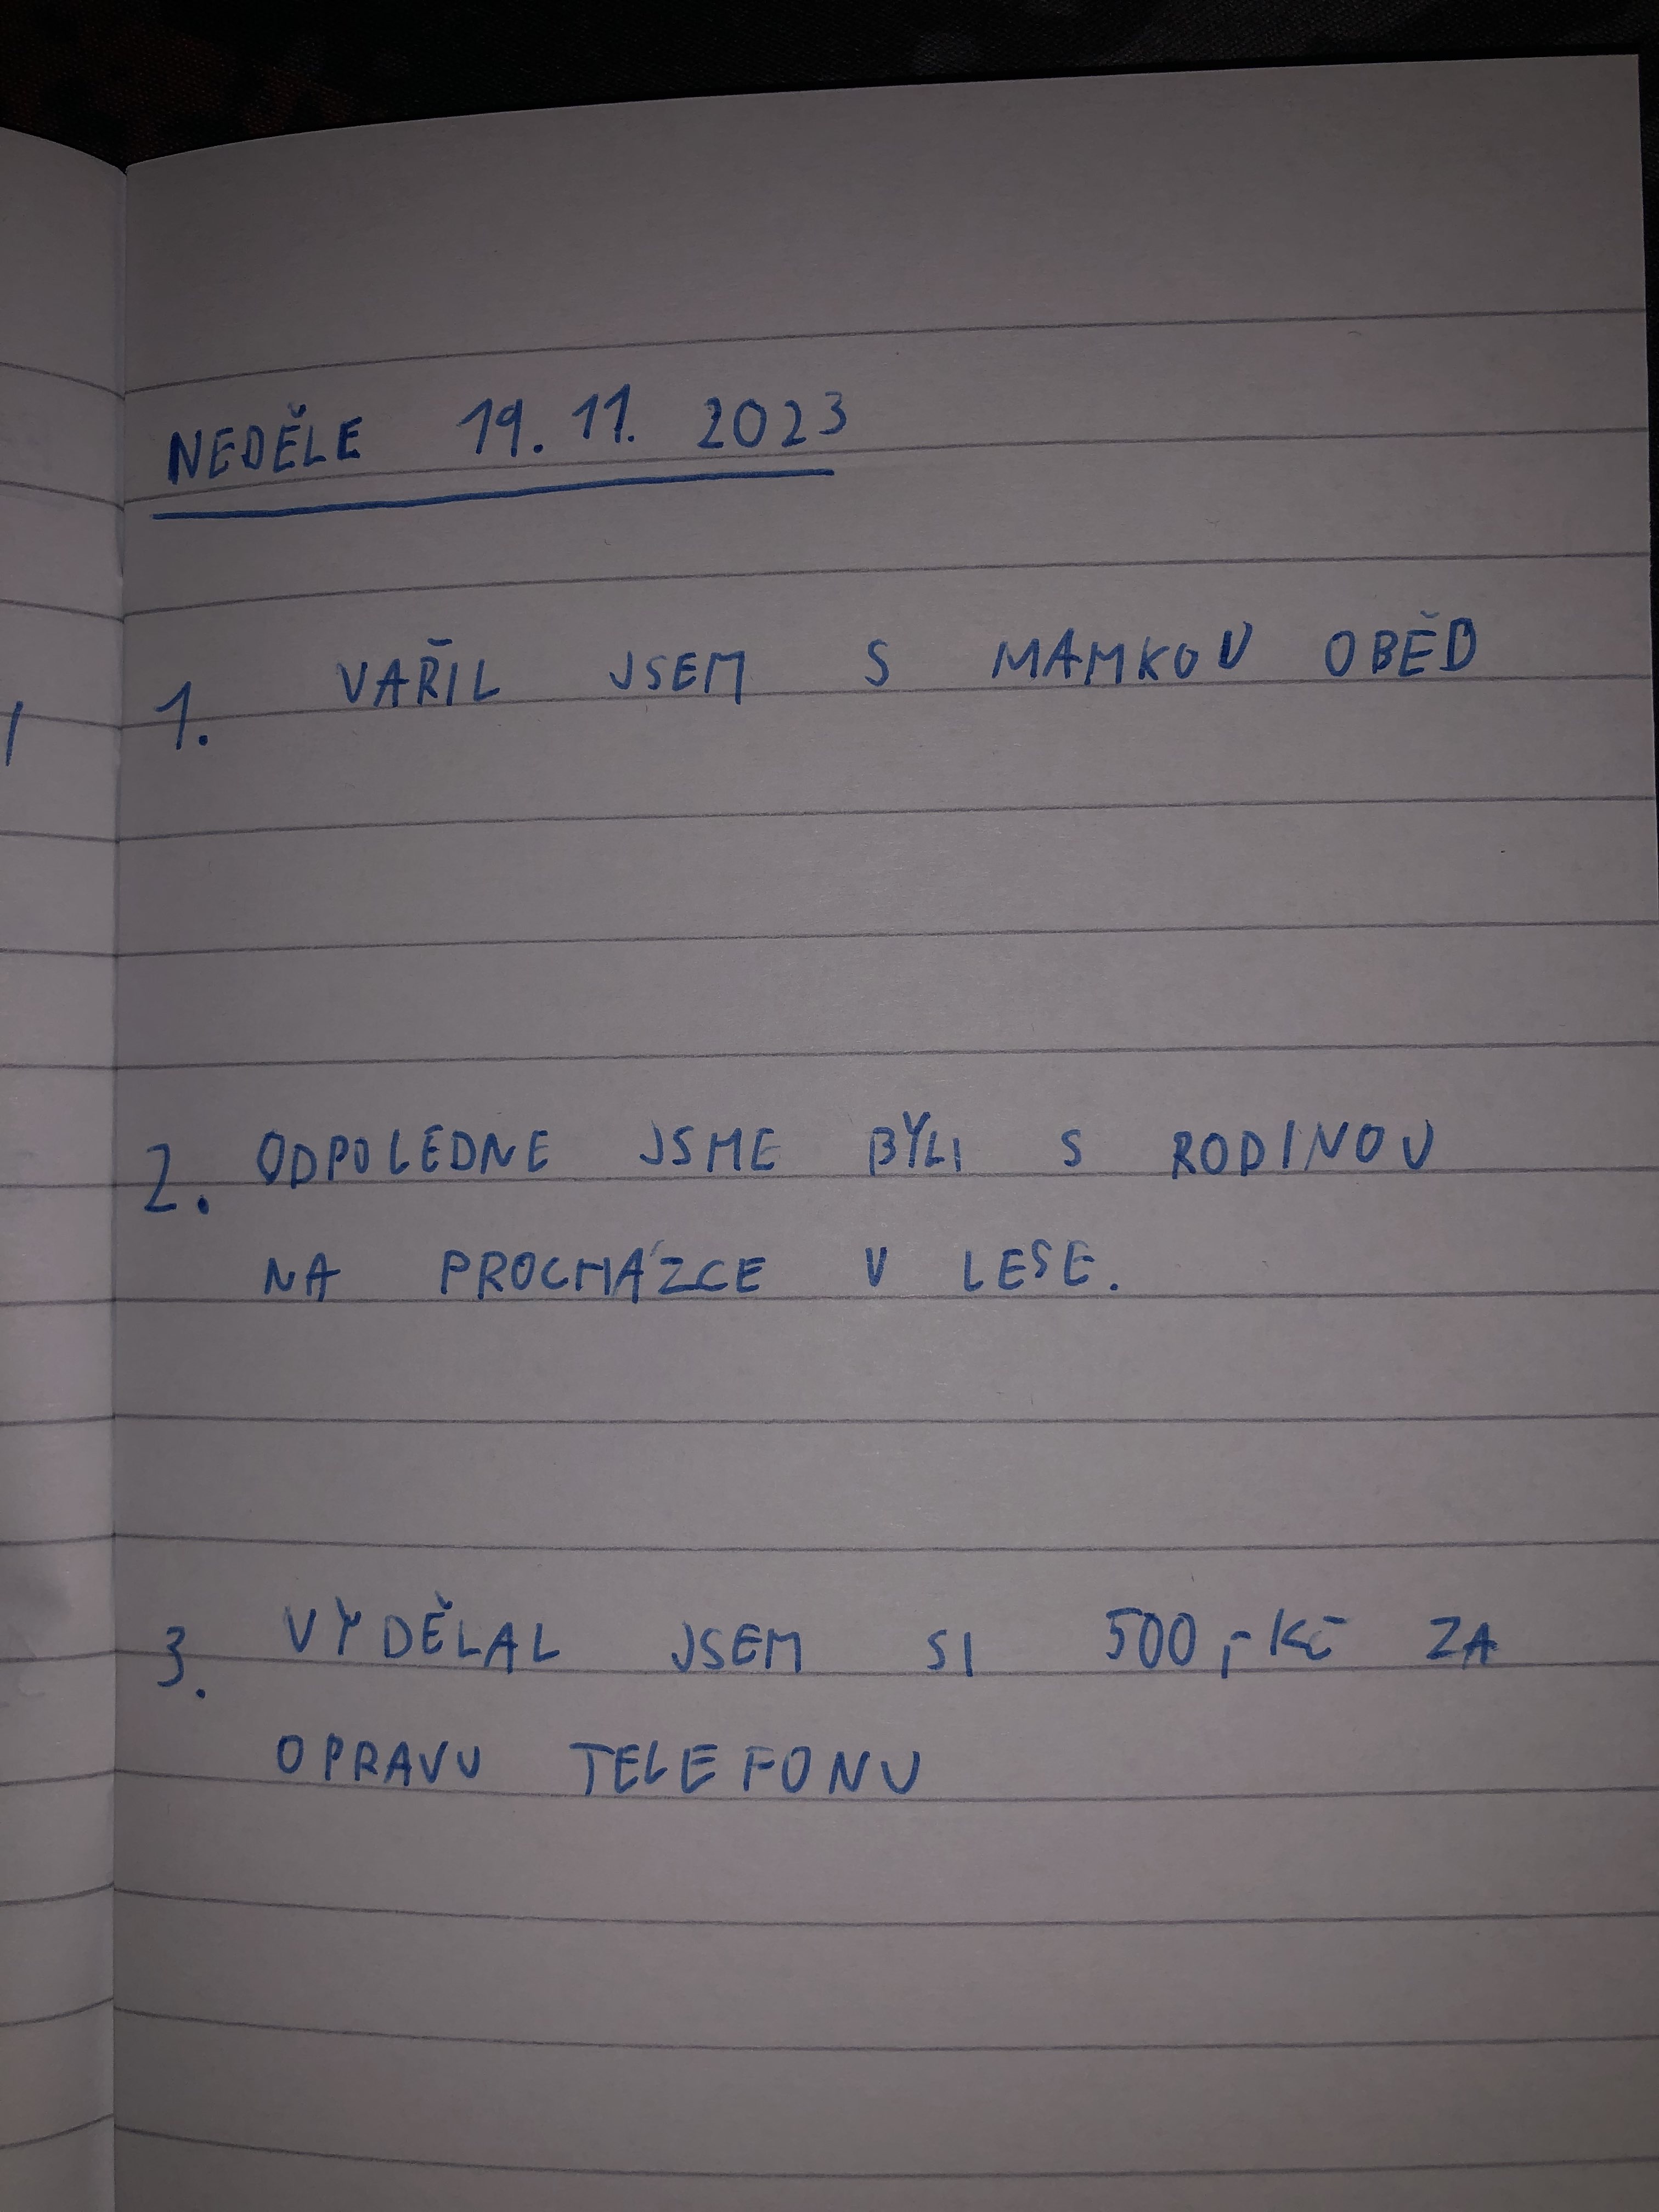 NEDĚLE 19. 11. 2023
1. VAŘIL JSEM S MAMKOU OBĚD
2. ODPOLEDNE JSME BYLI S RODINOU
NA PROCHÁZCE V LESE.
3. VYDĚLAL JSEM SI 500,- Kč ZA
OPRAVU TELEFONU